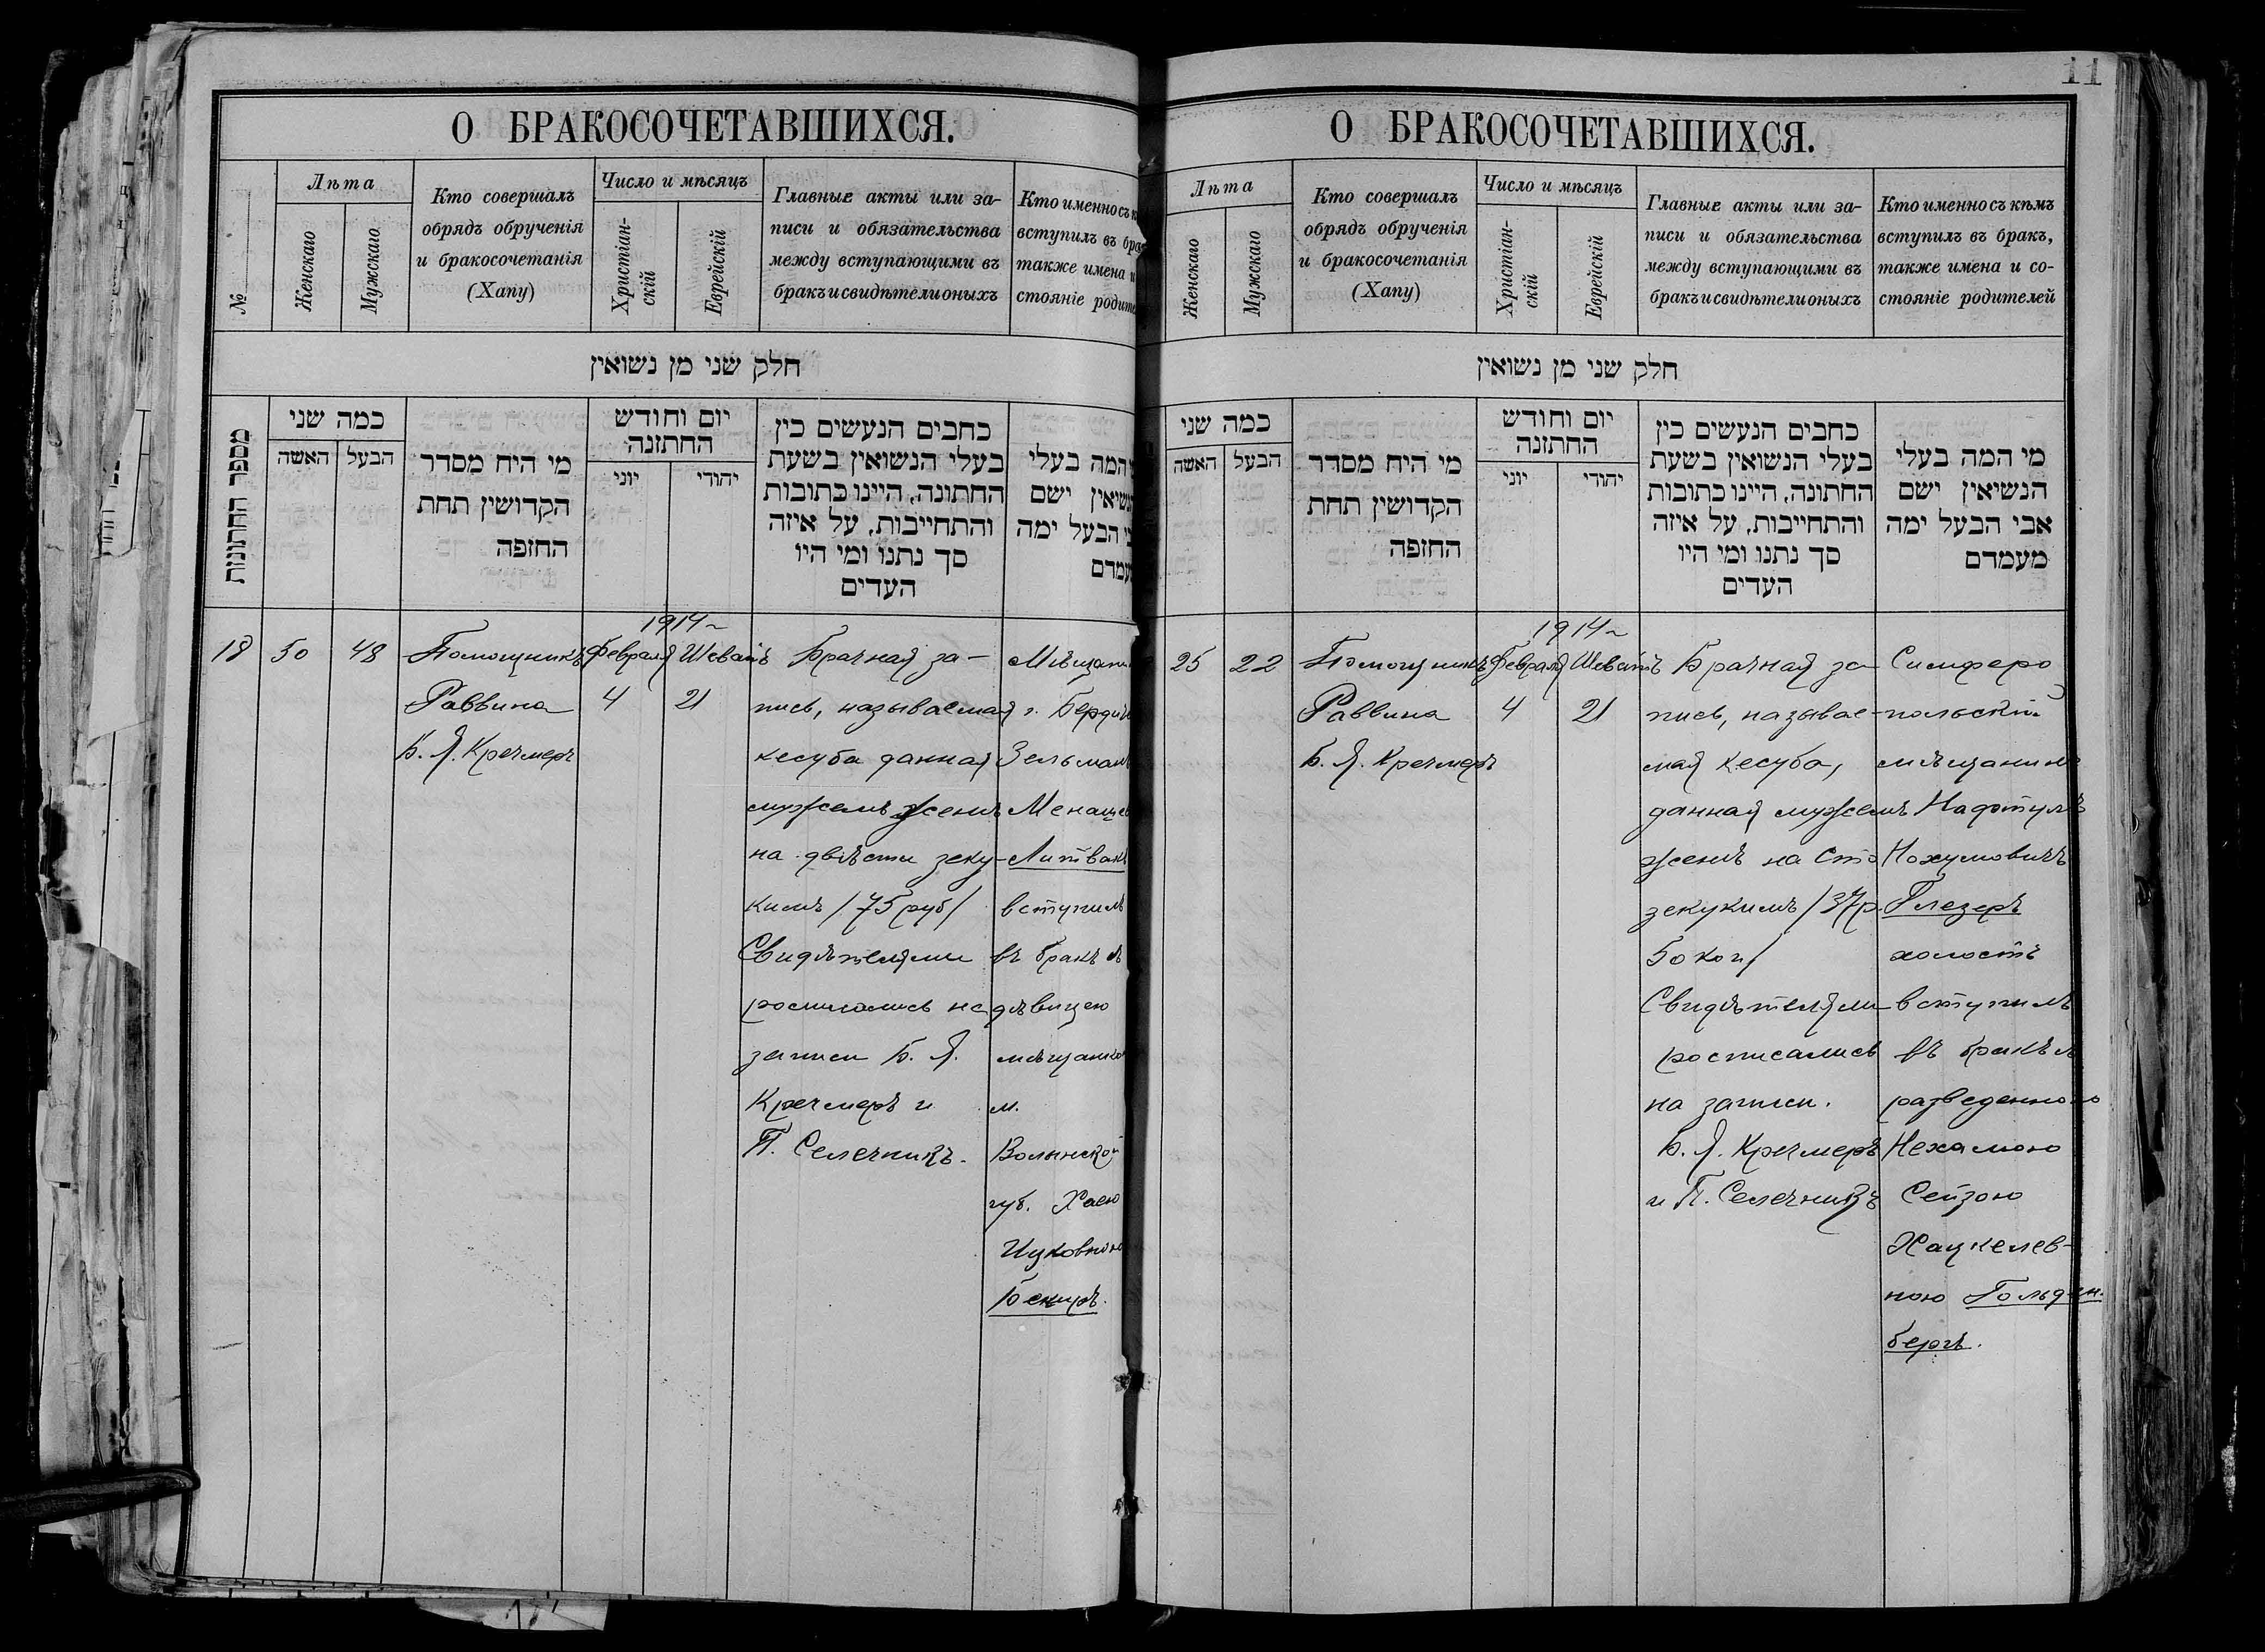 11
О БРАКОСОЧЕТАВШИХСЯ.
№
Лѣта
Женскаго
Мужскаго
Кто совершалъ
обрядъ обрученія
и бракосочетанія
(Хапу)
Число и мѣсяцъ
Христіан-
скій
Еврейскій
Главные акты или за-
писи и обязательства
между вступающими въ
бракъ и свидѣтели оныхъ
Кто именно съ
вступилъ въ бра
также имена и
стояніе родите
חלק שני מן נשואין
מספר החתונות
כמה שני
האשה
הבעל
מי היח מסדר
הקדושין תחת
החזפה
יום וחודש
החתונה
יוני
יהודי
כחבים הנעשים כין
בעלי הנשואין בשעת
החתונה, היינו כתובות
והתחייבות, על איזה
סך נתנו ומי היו
העדים
המה בעלי
ישם
הבעל ימה
18
50
48
Помощникъ
Раввина
Б. Я. Кречмеръ
1914
Февраля
4
Шеватъ
21
Брачная за-
пись, называемая
кесуба данная
мужемъ женѣ
на двѣсти зеку-
кимъ /75 руб/
Свидѣтелями
росписались на
записи Б. Я.
Кречмеръ и
П. Селечникъ.
Мѣщани
г. Бердич
Зельман
Менаше
Литвакъ
вступилъ
въ бракъ съ
дѣвицею
мѣщанко
м.
Волынской
губ. Хаею
Ицковною
О БРАКОСОЧЕТАВШИХСЯ.
Лѣта
Женскаго
Мужскаго
Кто совершалъ
обрядъ обрученія
и бракосочетанія
(Хапу)
Число и мѣсяцъ
Христіан-
скій
Еврейскій
Главные акты или за-
писи и обязательства
между вступающими въ
бракъ и свидѣтели оныхъ
Кто именно съ кѣмъ
вступилъ въ бракъ,
также имена и со-
стояніе родителей
חלק שני מן נשואין
כמה שני
האשה
הבעל
מי היח מסדר
הקדושין תחת
החזפה
יום וחודש
החתונה
יוני
יהודי
כחבים הנעשים כין
בעלי הנשואין בשעת
החתונה, היינו כתובות
והתחייבות, על איזה
סך נתנו ומי היו
העדים
מי המה בעלי
הנשיאין ישם
אבי הבעל ימה
מעמדם
25
22
Помощникъ
Раввина
Б. Я. Кречмеръ
1914
Февраля
4
Шеватъ
21
Брачная за-
пись, называе-
мая кесуба,
данная мужемъ
женѣ на Сто
зекукимъ /37р.
50 коп/
Свидѣтелями
росписались
на записи.
Б. Я. Кречмеръ
и П. Селечникъ
Симферо
польскій
мѣщанинъ
Нафтулъ
Нохумовичъ
Глезеръ
холостъ
вступилъ
въ бракъ съ
разведенною
Нехамою
Сейзою
Хацкелев-
ною Гольден-
бергъ.